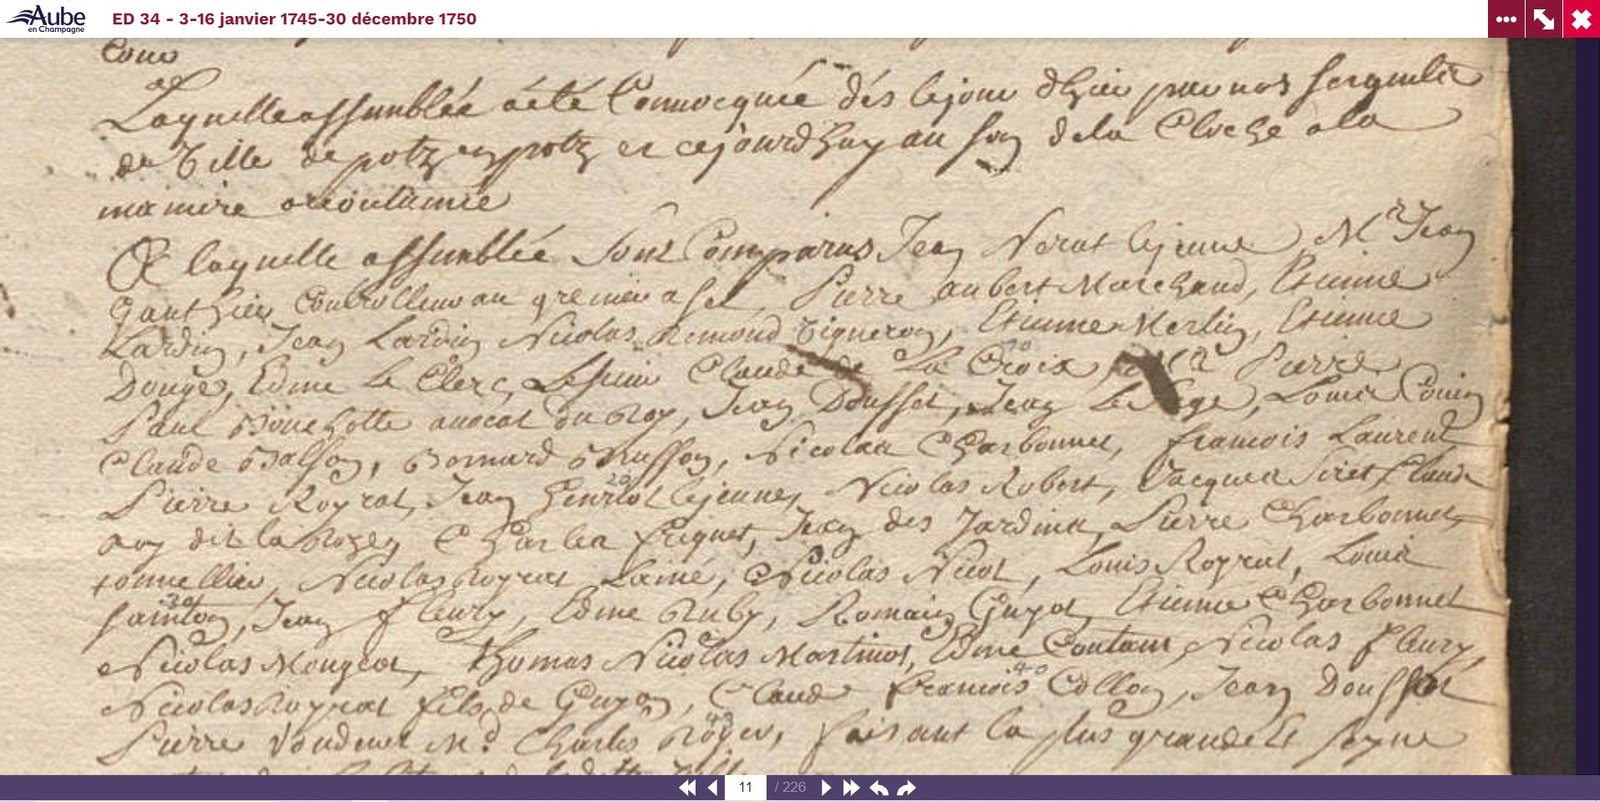 Aube
en Champagne
ED 34 - 3-16 janvier 1745-30 décembre 1750
Laquelle assemblée a été Convocquée dés le jour d'hier par nos sergents
de Ville de potz en potz et cejourd'huy au son de la Cloche a la
maniere accoutumée
A laquelle assemblée sont Comparus Jean Verat le jeune, Mr Jean
Gauthier Controlleur au grenier a sel, Pierre aubert Marchand, Etienne
Lardin, Jean Lardin Nicolas Remond Vigneron, Etienne Merlin, Etienne
Dougé, Edme Le Clerc, Claude de La Croix, Mr Pierre
Paul Bouchotte avocat du Roy, Jean Dousset, Jean Le Sage, Louis
Claude Balson, Bernard Busson, Nicolas Charbonnet, francois Laurent
Pierre Royrat, Jean henriot le jeune, Nicolas Robert, Jacques Siret, Claude
dit la Charles friquet, Jean des Jardins, Pierre Charbonnet
tonnellier, Nicolas Royrat Lainé, Nicolas Nicot, Louis Royrat, Louis
Sainton, Jean fleury, Edme Ruby, Romain Guyot, Etienne Charbonnet
Nicolas Mougeot, thomas Nicolas Martinot, Edme Coutant, Nicolas fleury,
Nicolas Royrat fils de Guyon, Claude francois Collon, Jean Doussot
Pierre Vendenet Md Charles Royer, faisant la plus grande et seyne
11 / 226